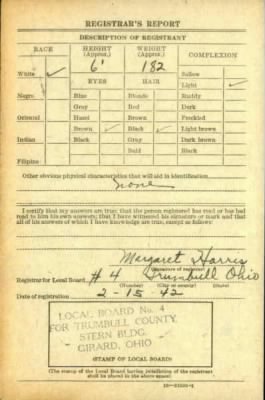 REGISTRAR'S REPORT
DESCRIPTION OF REGISTRANT
RACE HEIGHT (Approx.) WEIGHT (Approx.) COMPLEXION
6' 182 Sallow
White ✓ EYES HAIR Light ✓
Negro Blue Blonde Ruddy
Gray Red Dark
Oriental Hazel Brown Freckled
Brown ✓ Black ✓ Light brown
Indian Black Gray Dark brown
Bald Black
Filipino
Other obvious physical characteristics that will aid in identification
none
I certify that my answers are true; that the person registered has read or has had
read to him his own answers; that I have witnessed his signature or mark and that
all of his answers of which I have knowledge are true, except as follows:
Margaret Harris
(Signature of registrar)
Registrar for Local Board # 4 Trumbull Ohio
(Number) (City or county) (State)
Date of registration 2-15-42
LOCAL BOARD No. 4
FOR TRUMBULL COUNTY
STERN BLDG.
GIRARD, OHIO
(STAMP OF LOCAL BOARD)
(The stamp of the Local Board having jurisdiction of the registrant
shall be placed in the above space.)